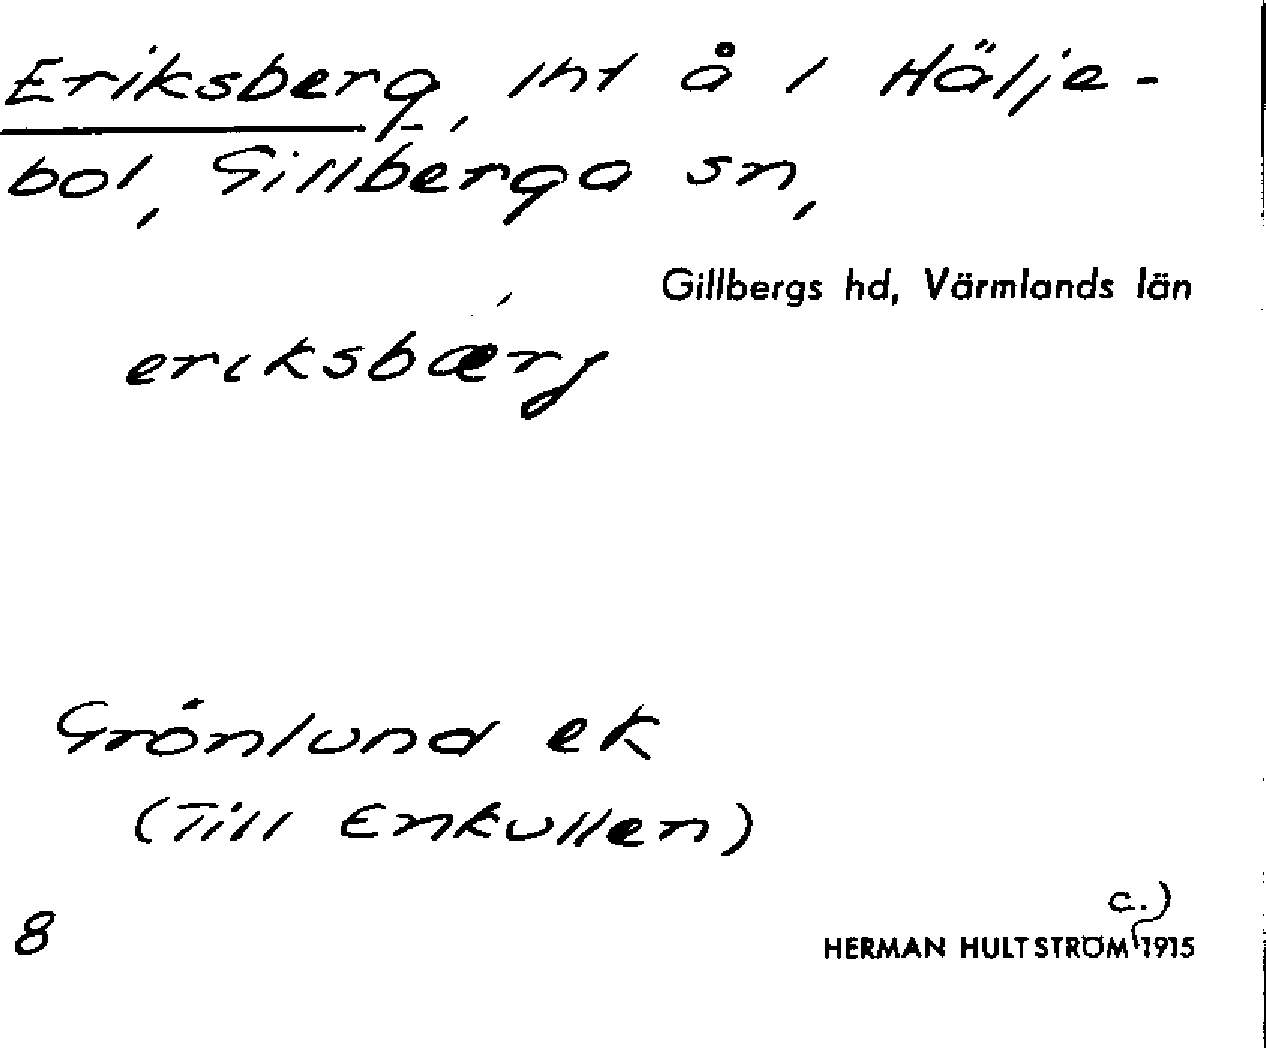 Eriksberg, int å i Hälje-
bol, Gillberga sn,
Gillbergs hd, Värmlands län
eriksbærj
Grönlund ek
(Till Enkullen)
8
c.)
HERMAN HULTSTRÖM 1915